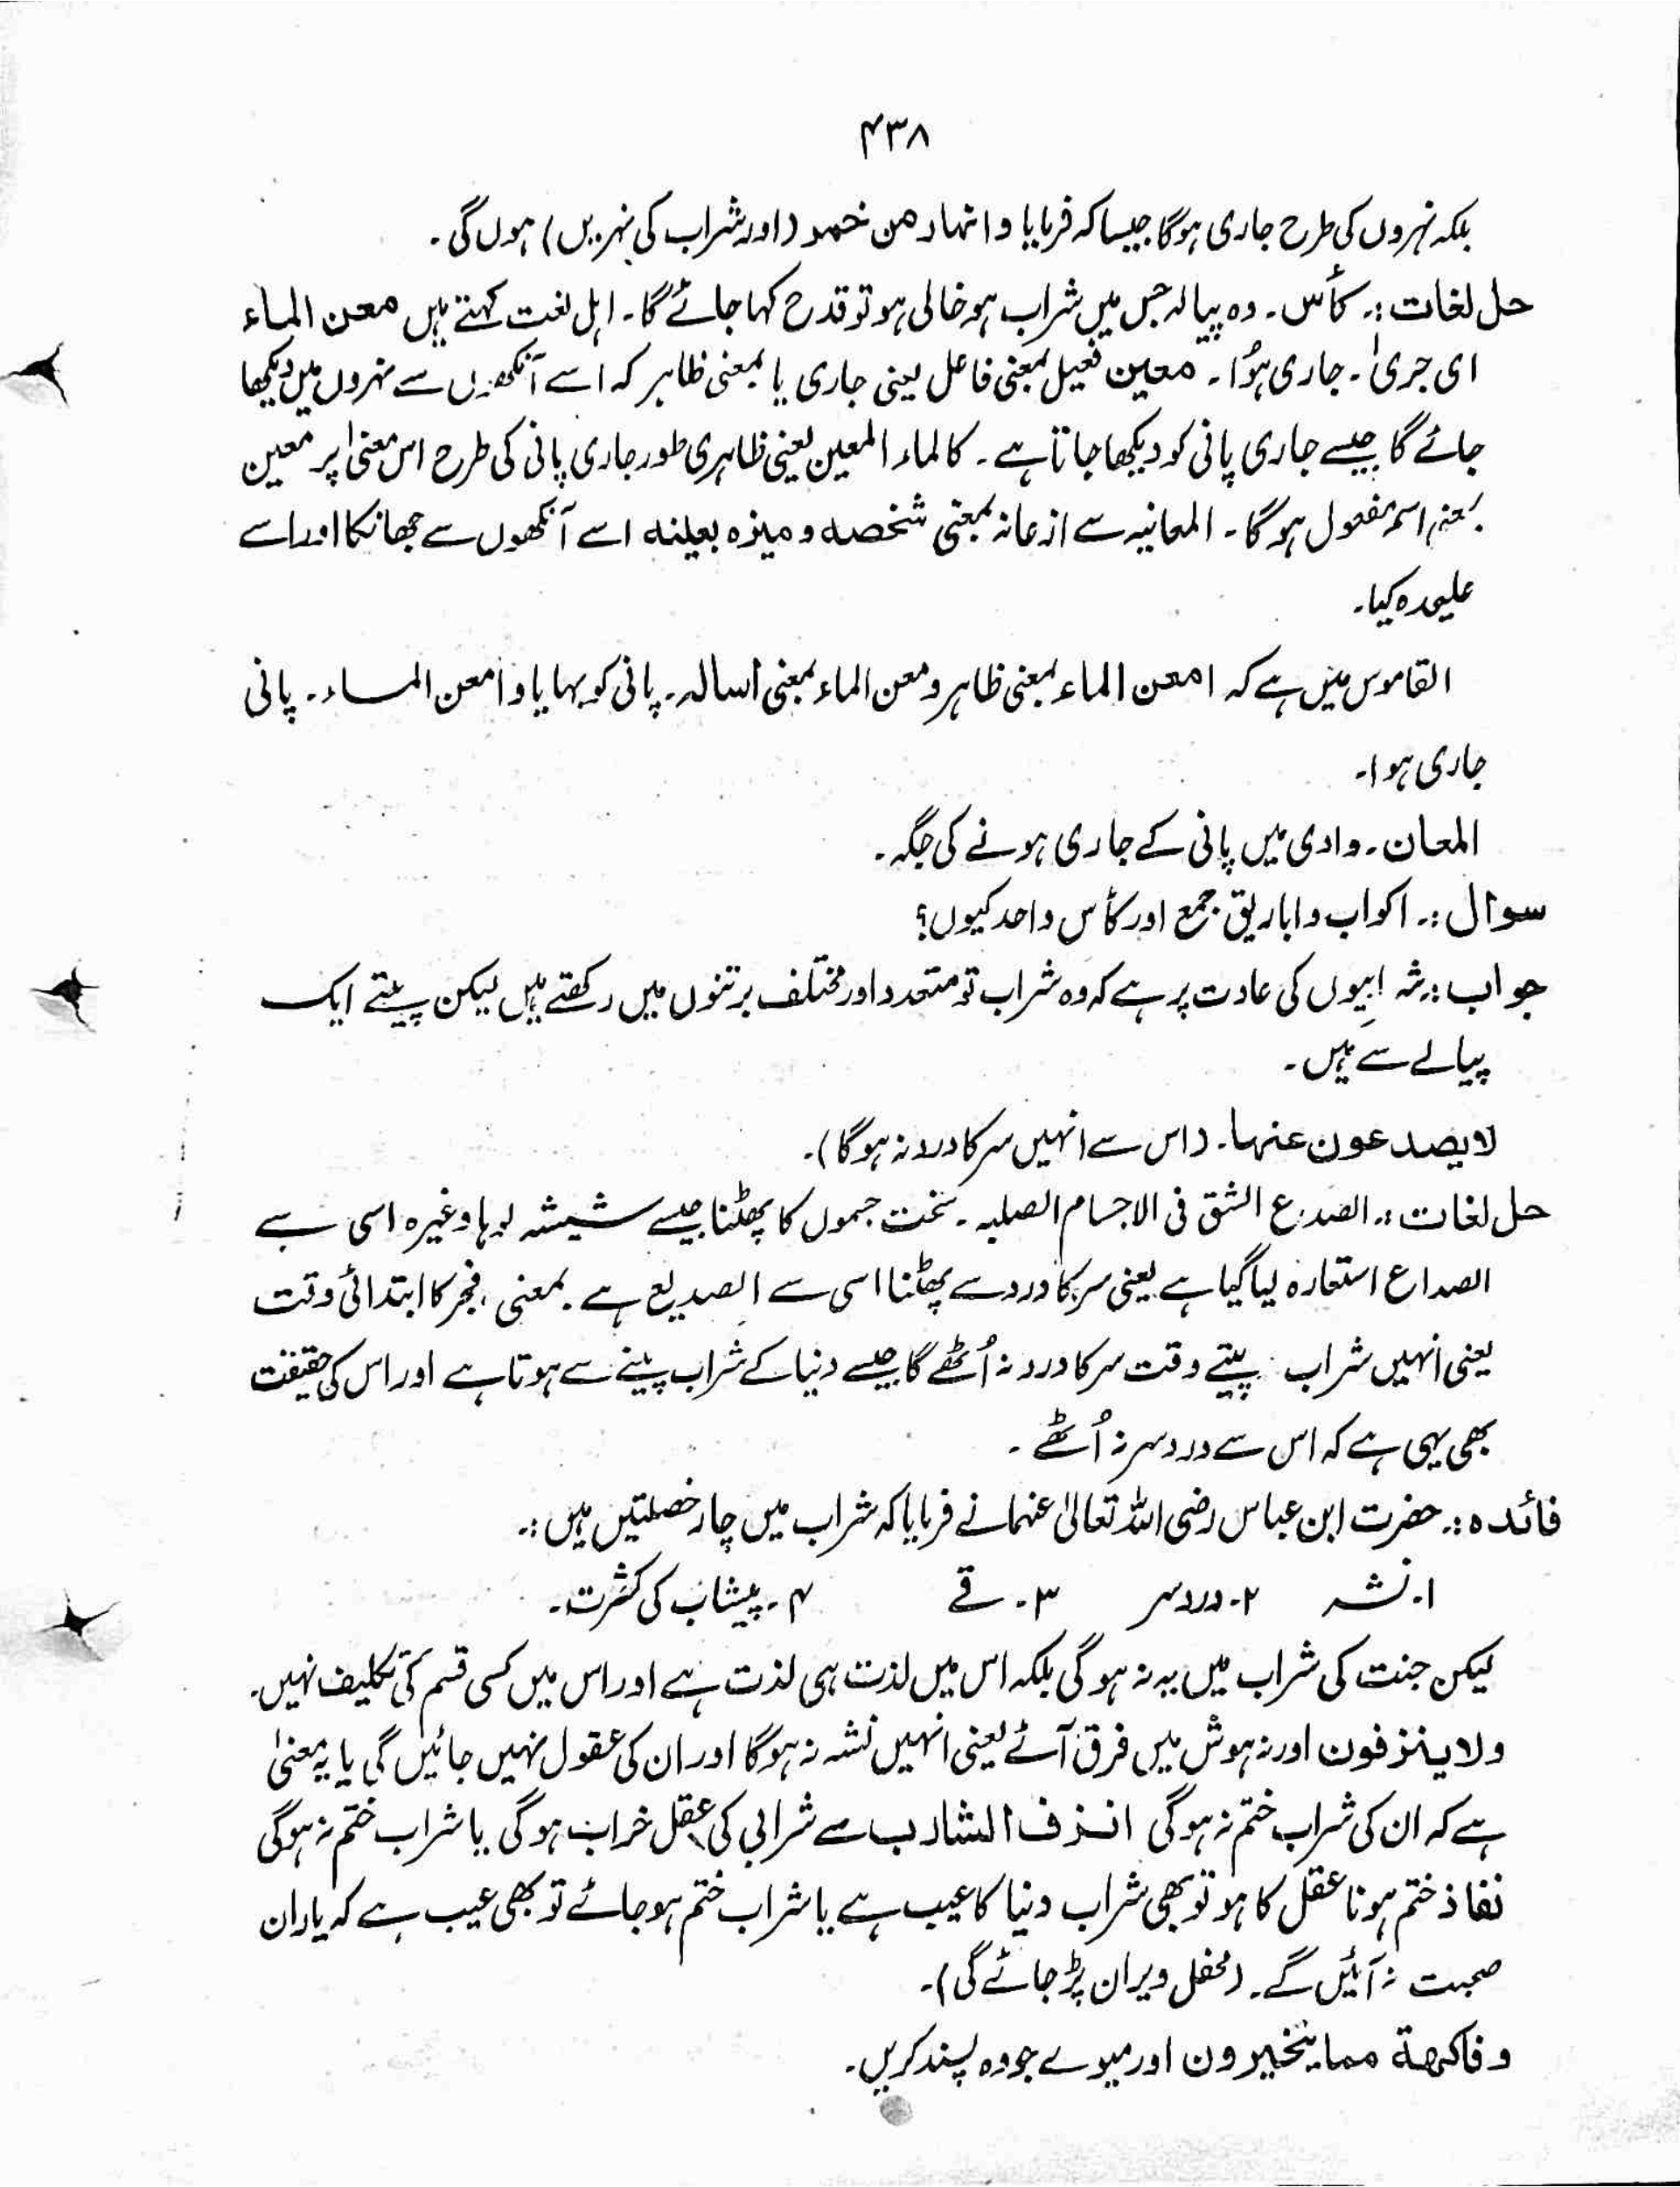 ۴۳۸
بلکہ نہروں کی طرح جاری ہوگا جیسا کہ فرمایا وانهار من خمر (اور شراب کی نہریں) ہوں گی۔
حل لغات :۔ کأس۔ وہ پیالہ جس میں شراب ہو خالی ہو تو قدح کہا جائے گا۔ اہل لغت کہتے ہیں معن الماء
ای جریٰ۔ جاری ہؤا۔ معین فعیل بمعنی فاعل یعنی جاری یا بمعنی ظاہر کہ اسے آنکھوں سے نہروں میں دیکھا
جائے گا جیسے جاری پانی کو دیکھا جاتا ہے۔ کالماء المعین یعنی ظاہری طور جاری پانی کی طرح اس معنیٰ پر معین
بمعنی اسم مفعول ہوگا۔ المعانیہ سے از عانہ بمعنی شخصہ و میزہ بعینہ اسے آنکھوں سے جھانکا اور اسے
علیحدہ کیا۔
القاموس میں ہے کہ امعن الماء بمعنی ظاہر و معن الماء بمعنی اسالہ۔ پانی کو بہایا و امعن الماء۔ پانی
جاری ہوا۔
المعان۔ وادی میں پانی کے جاری ہونے کی جگہ۔
سوال :۔ اکواب و اباریق جمع اور کأس واحد کیوں؟
جواب :۔ شرابیوں کی عادت پر ہے کہ وہ شراب تو متعدد اور مختلف برتنوں میں رکھتے ہیں لیکن پیتے ایک
پیالے سے ہیں۔
لا یصدعون عنہا۔ (اس سے انہیں سر کا درد نہ ہوگا)۔
حل لغات :۔ الصدع الشق فی الاجسام الصلبہ۔ سخت جسموں کا پھٹنا جیسے شیشہ لوہا وغیرہ اسی سے
الصداع استعارہ لیا گیا ہے یعنی سر کا درد سے پھٹنا اسی سے الصدیع ہے۔ بمعنی فجر کا ابتدائی وقت
یعنی انہیں شراب پیتے وقت سر کا درد نہ اُٹھے گا جیسے دنیا کے شراب پینے سے ہوتا ہے اور اس کی حقیقت
بھی یہی ہے کہ اس سے درد سر نہ اُٹھے۔
فائدہ :۔ حضرت ابن عباس رضی اللہ تعالیٰ عنہما نے فرمایا کہ شراب میں چار خصلتیں ہیں :۔
۱۔ نشہ ۲۔ درد سر ۳۔ قے ۴۔ پیشاب کی کثرت۔
لیکن جنت کی شراب میں یہ نہ ہوگی بلکہ اس میں لذت ہی لذت ہے اور اس میں کسی قسم کی تکلیف نہیں۔
ولا ینزفون اور نہ ہوش میں فرق آئے یعنی انہیں نشہ نہ ہوگا اور ان کی عقول نہیں جائیں گی یا یہ معنیٰ
ہے کہ ان کی شراب ختم نہ ہوگی انزف الشارب سے شرابی کی عقل خراب ہوگی یا شراب ختم نہ ہوگی
نفاذ ختم ہونا عقل کا ہو تو بھی شراب دنیا کا عیب ہے یا شراب ختم ہو جائے تو بھی عیب ہے کہ یاران
صحبت نہ آئیں گے۔ (محفل ویران پڑ جائے گی)۔
وفاکهة مما یتخیرون اور میوے جو وہ پسند کریں۔